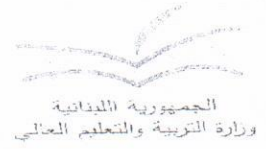 الجمهورية اللبنانية
وزارة التربية والتعليم العالي